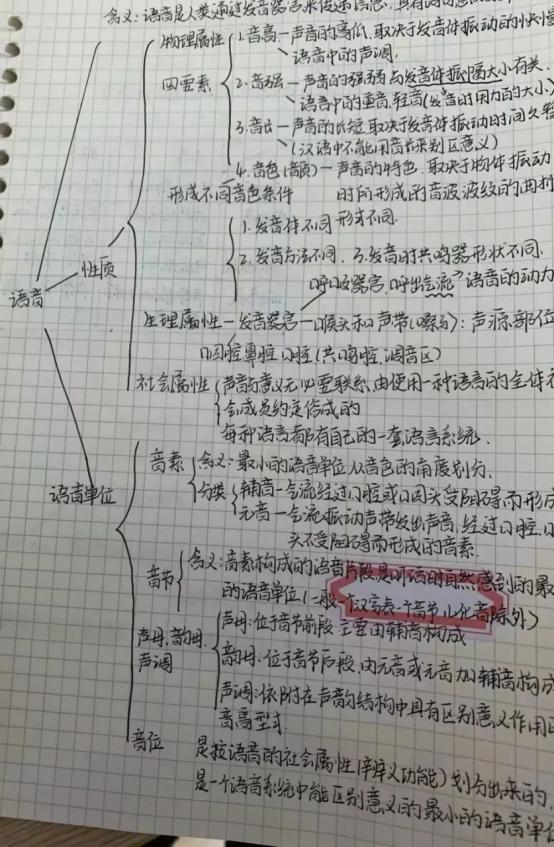 含义:语音是人类通过发音器官来传递信息,具有
物理属性
四要素
1.音高—声音的高低,取决于发音体振动的快慢
语音中的声调.
2.音强—声音的强弱与发音体振幅大小有关.
语音中的重音,轻音(发音时用力的大小)
3.音长—声音的长短,取决于发音体振动时间久暂
(汉语中不能用音长来别区意义)
4.音色(音质)—声音的特色,取决于物体振动
时所形成的音波波纹的曲折
形成不同音色条件
1.发音体不同 形式不同.
2.发音方法不同. 3.发音时共鸣器形状不同.
呼吸器官,呼出气流→语音的动力
性质
语音
生理属性—发音器官—喉头和声带(嗓子):声源部位
口咽腔鼻腔口腔(共鸣腔,调音区)
社会属性(声音意义无必要联系,由使用一种语言的全体
会成员约定俗成的
每种语言都有自己的一套语音系统.
语音单位
音素
含义:最小的语音单位,从音色的角度划分.
分类
辅音—气流经过口腔或咽头受阻碍而形成
元音—气流振动声带发出声音,经过口腔,
头不受阻碍而形成的音素.
音节
含义:音素构成的语音片段是听话时自然感到的最
的语音单位(一般一个汉字表一个音节,儿化音除外)
声母,韵母,
声调
声母:位于音节前段,主要由辅音构成
韵母:位于音节后段,由元音或元音加辅音构成
声调:依附在声韵结构中具有区别意义作用
音高型式.
音位
是按语音的社会属性(辨义功能)划分出来的,
是一个语音系统中能区别意义的最小的语音单位